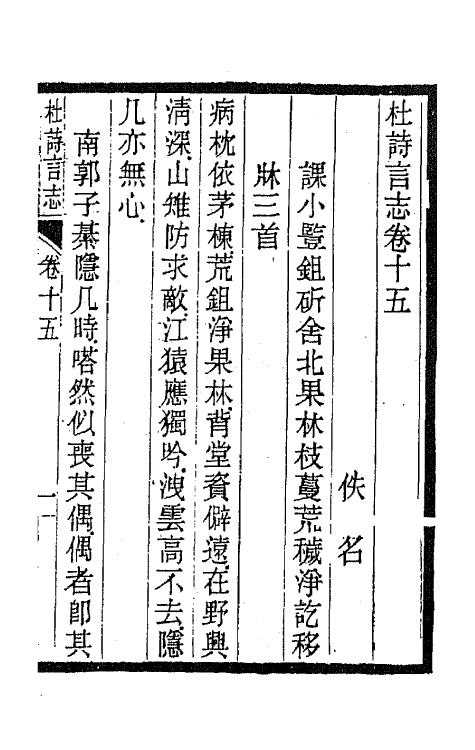 杜詩言志卷十五
佚名
課小豎鉏斫舍北果林枝蔓荒穢淨訖移
牀三首
病枕依茅棟荒鉏淨果林背堂資僻遠在野興
淸深山雉防求敵江猿應獨吟洩雲高不去隱
几亦無心
南郭子綦隱几時嗒然似喪其偶偶者卽其
杜詩言志
卷十五
一